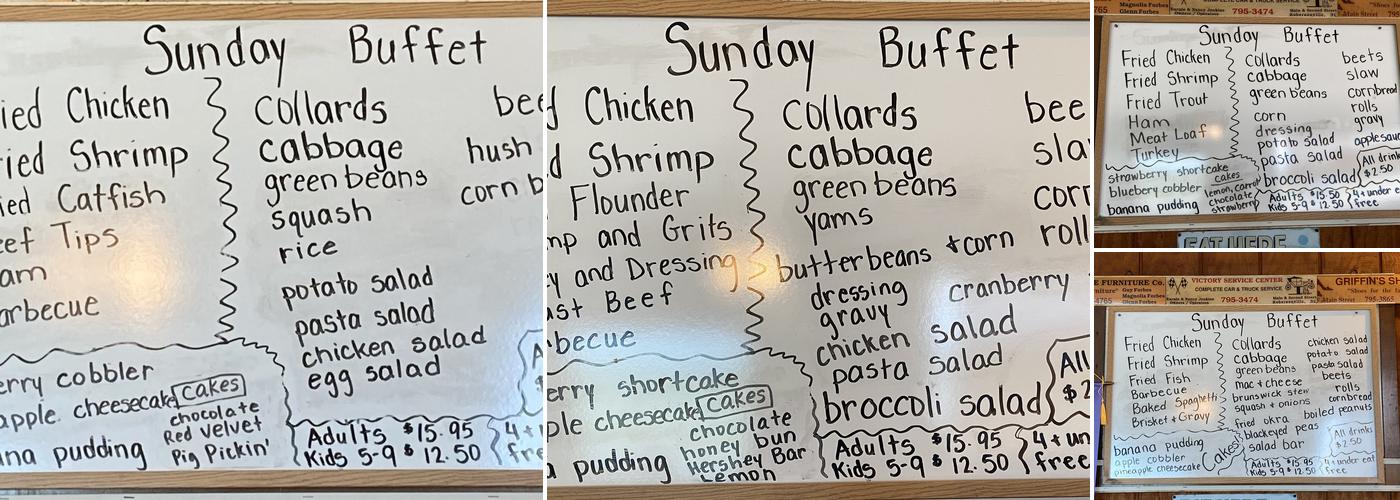 Sunday Buffet
ied Chicken
ried Shrimp
ied Catfish
eef Tips
am
arbecue
Collards
cabbage
green beans
squash
rice
potato salad
pasta salad
chicken salad
egg salad
bee
hush
corn b
erry cobbler
apple. cheesecake
na pudding
cakes
chocolate
Red Velvet
Pig Pickin'
Adults $15.95
Kids 5-9 $12.50
4+u
fre
Sunday Buffet
d Chicken
d Shrimp
Flounder
mp and Grits
y and Dressing
ast Beef
becue
Collards
cabbage
green beans
yams
butterbeans +corn
dressing
gravy
chicken salad
pasta salad
broccoli salad
bee
slaw
corn
roll
cranberry
erry shortcake
ple cheesecake
a pudding
cakes
chocolate
honey bun
Hershey Bar
Lemon
All
$2
Adults $15.95
Kids 5-9 $12.50
4+un
free
Magnolia Forbes
Glenn Forbes
795-3474
Sunday Buffet
Fried Chicken
Fried Shrimp
Fried Trout
Ham
Meat Loaf
Turkey
Collards
cabbage
green beans
corn
dressing
potato salad
pasta salad
broccoli salad
beets
slaw
cornbread
rolls
gravy
applesauc
strawberry shortcake
blueberry cobbler
banana pudding
cakes
lemon, carrot
chocolate
strawberry
All drink
$2.50
Adults $15.50
Kids 5-9 $12.50
4+under e
free
EAT HERE
E FURNITURE Co.
Guy Forbes
Magnolia Forbes
Glenn Forbes
4765
VICTORY SERVICE CENTER
COMPLETE CAR & TRUCK SERVICE
795-3474
GRIFFIN'S SH
"Shoes for the
Main Street 795-3865
Sunday Buffet
Fried Chicken
Fried Shrimp
Fried Fish
Barbecue
Baked Spaghetti
Brisket + Gravy
Collards
cabbage
green beans
mac + cheese
brunswick stew
squash + onions
fried okra
blackeyed peas
salad bar
chicken salad
potato salad
pasta salad
beets
rolls
cornbread
boiled peanuts
banana pudding
apple cobbler
pineapple cheesecake
Cakes
All drinks
$2.50
Adults $15.95
Kids 5-9 $12.50
4+under eat
free